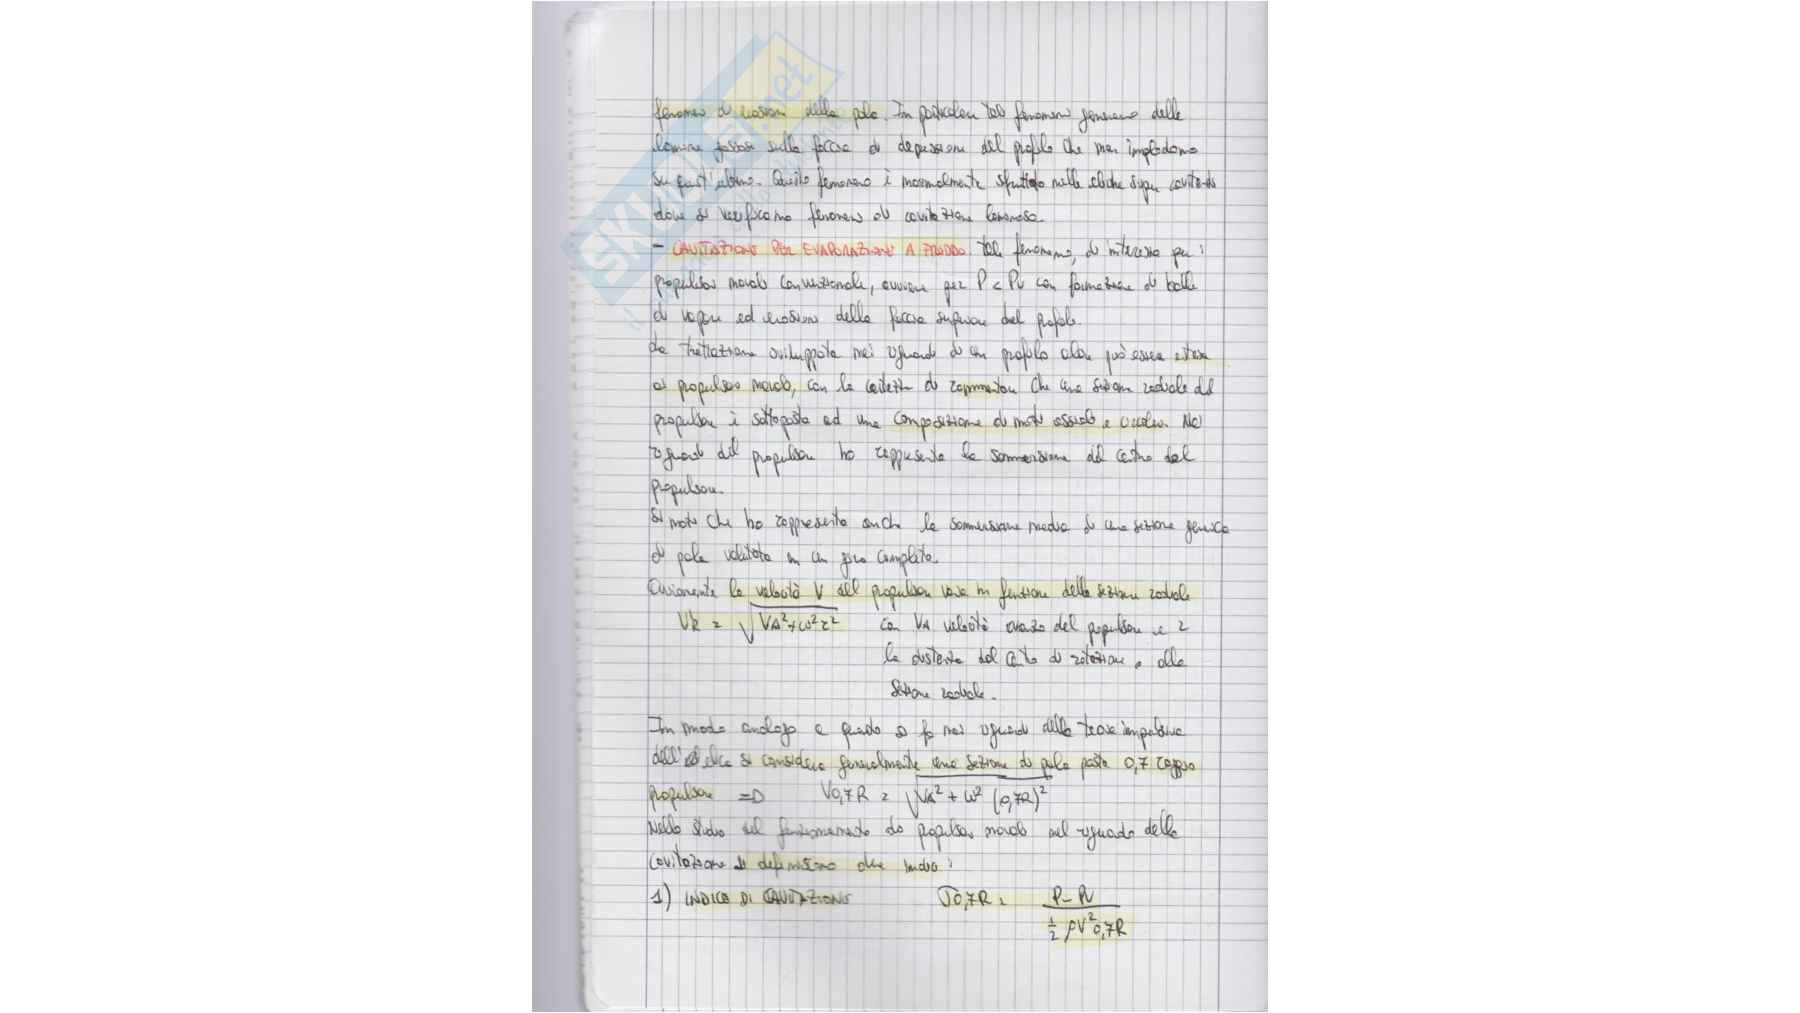 fenomeni di erosione della pala. In particolare tale fenomeno generano delle
lamine gassose sulla faccia di depressione del profilo che non implodono
su quest'ultimo. Questo fenomeno è normalmente sfruttato nelle eliche super cavitanti
dove si verificano fenomeni di cavitazione laminare.
- CAVITAZIONE PER EVAPORAZIONE A FREDDO. Tale fenomeno, di interesse per i
propulsori navali convenzionale, avviene per P < Pv con formazione di bolle
di vapore ed erosione della faccia superiore del profilo.
La trattazione sviluppata nei riguardi di un profilo alare può essere estesa
ai propulsori navali, con la certezza di rammentare che una sezione radiale del
propulsore è sottoposta ad una composizione di moti assiale e circolare. Nei
riguardi del propulsore ho rappresenta la sommersione del centro del
propulsore.
Si noti che ho rappresenta anche la sommersione media di una sezione generica
di pala valutata in un giro completo.
Ovviamente la velocità V del propulsore varia in funzione della sezione radiale
VR = √VA²+ω²r² con VA velocità avanzo del propulsore e r
la distanza dal centro di rotazione e alla
sezione radiale.
In modo analogo a quando si fa nei riguardi delle teorie impulsive
dell'elica si considera generalmente una sezione di pala posta 0,7 raggio
propulsore => V0,7R = √VA² + ω² (0,7R)²
Nello studio del funzionamento dei propulsori navali nel riguardo della
cavitazione si definiscono due indici:
1) INDICE DI CAVITAZIONE σ0,7R = P - Pv / ½ ρV²0,7R
SKUOLA.net